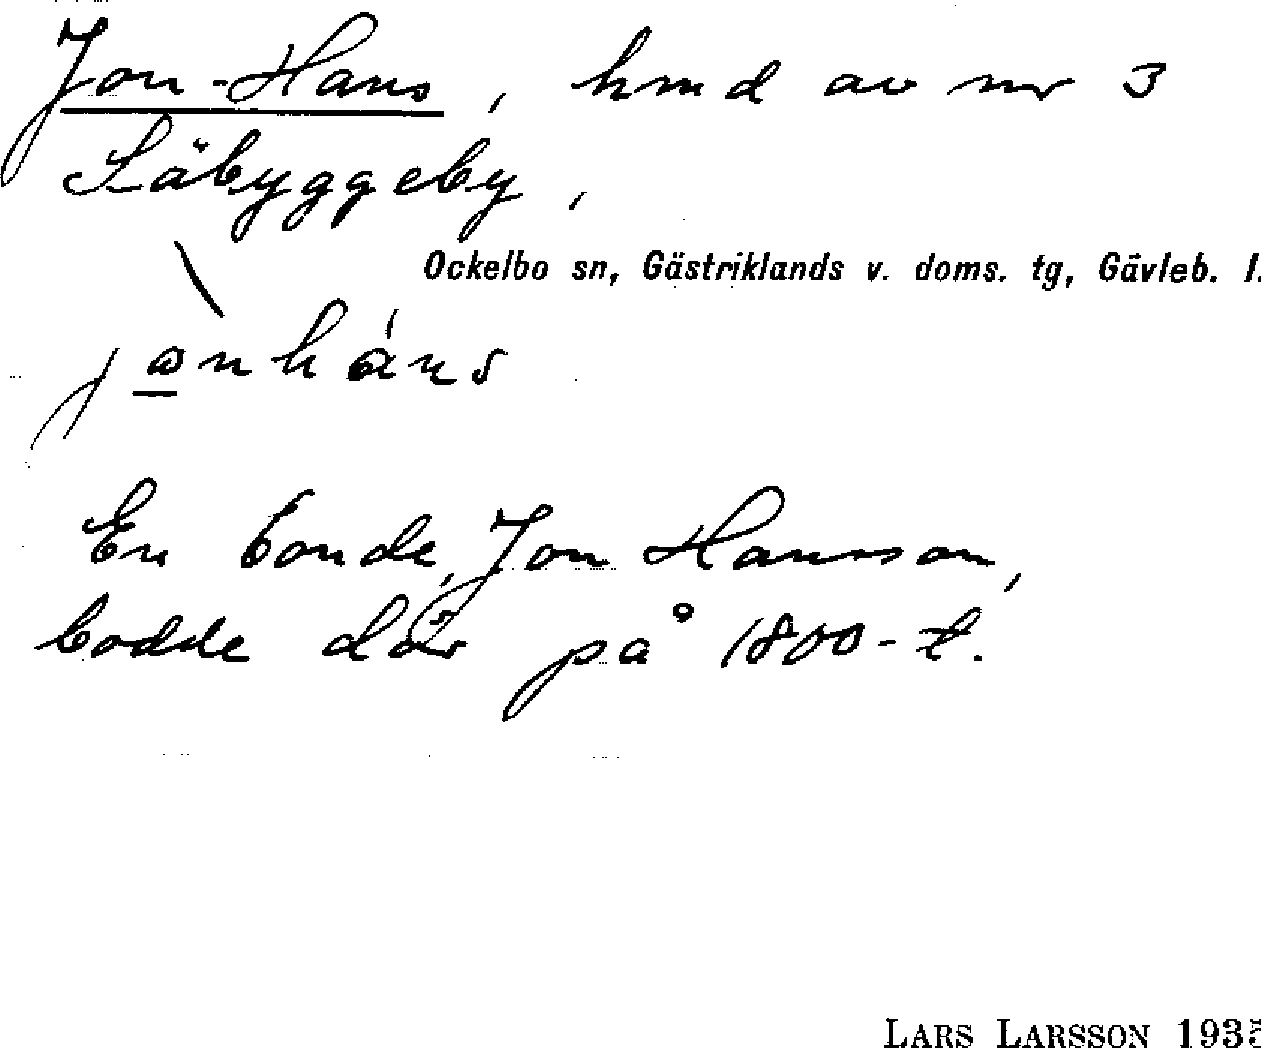 Jon-Hans, hmd av nr 3
Säbyggeby,
Ockelbo sn, Gästriklands v. doms. tg, Gävleb. l.
\
jɷnháns
En bonde, Jon Hansson,
bodde där på 1800-t.
LARS LARSSON 1935